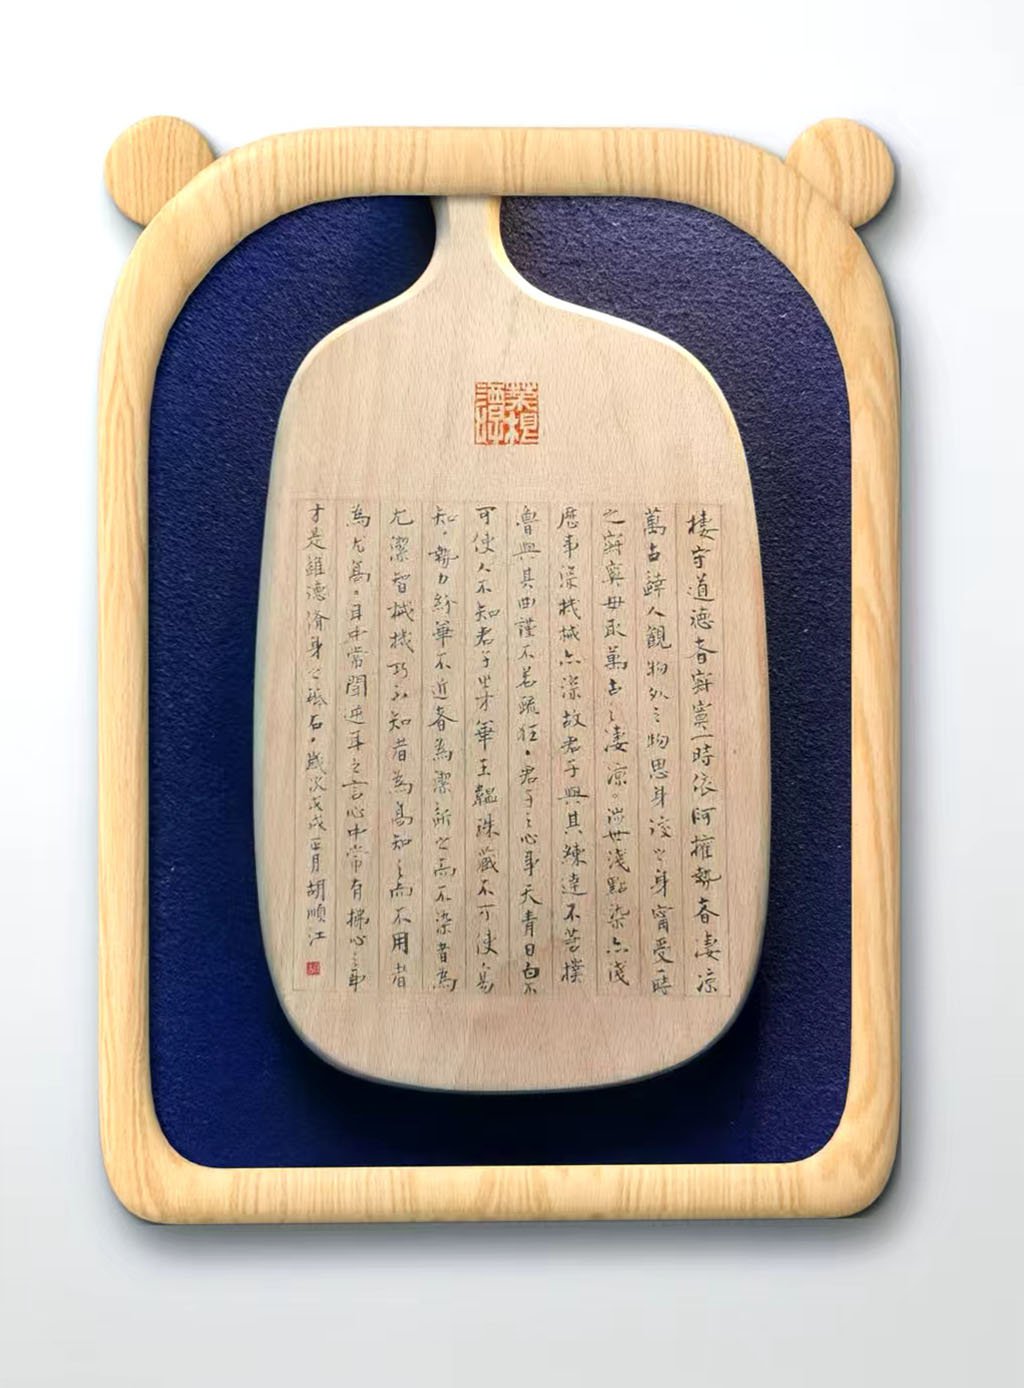 棲守道德者寂寞一時依阿權勢者凄凉
萬古達人觀物外之物思身後之身甯受一時
之寂寞毋取萬古之凄凉。涉世淺點染亦淺
歷事深機械亦深故君子與其練達不若樸
魯與其曲謹不若疏狂。君子之心事天青日白不
可使人不知君子之才華玉韞珠藏不可使易
知。勢力紛華不近者為潔近之而不染者為
尤潔智械機巧不知者為高知之而不用者
為尤高。耳中常聞逆耳之言心中常有拂心之事
才是進德脩身之砥石。歲次戊戌正月胡順江